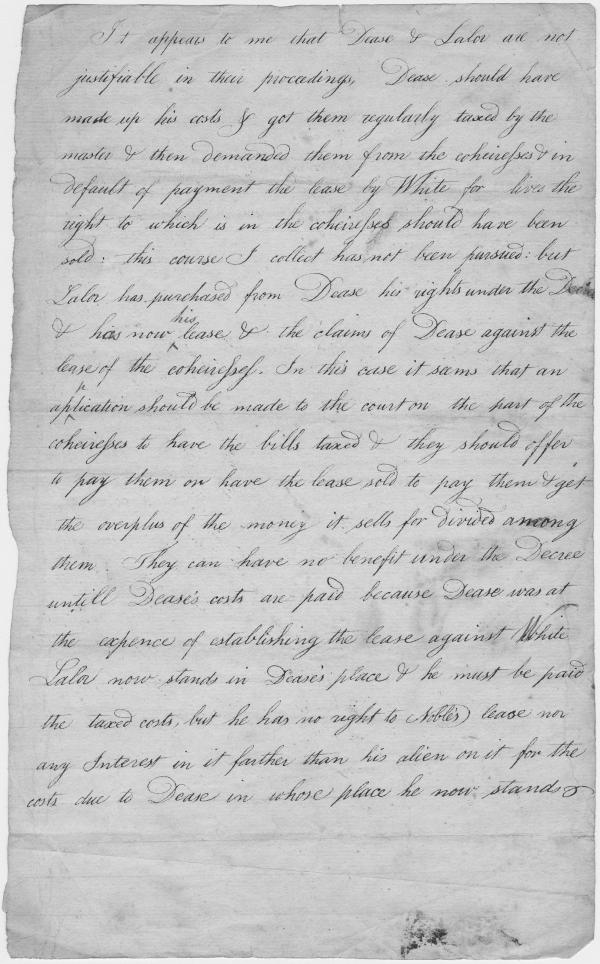 It appears to me that Dease & Lalor are not
justifiable in their proceedings, Dease should have
made up his costs & got them regularly taxed by the
master & then demanded them from the coheiresses & in
default of payment the lease by White for lives the
right to which is in the coheiresses should have been
sold: this course I collect has not been pursued: but
Lalor has purchased from Dease his rights under the Decree
& has now his lease & the claims of Dease against the
lease of the coheiresses. In this case it seems that an
application should be made to the court on the part of the
coheiresses to have the bills taxed & they should offer
to pay them or have the lease sold to pay them & get
the overplus of the money it sells for divided among
them. They can have no benefit under the Decree
untill Dease's costs are paid because Dease was at
the expence of establishing the lease against White
Lalor now stands in Dease's place & he must be paid
the taxed costs, but he has no right to Noble's lease nor
any Interest in it farther than his alien on it for the
costs due to Dease in whose place he now stands